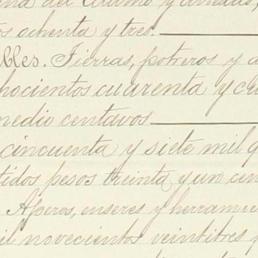 del Alamo y
ochenta y tres.
lles. Tierras, potreros y a
hocientos cuarenta y c
medio centavos
cincuenta y siete mil q
tidos pesos treinta y un cen
Aperos, enseres y herramie
il novecientos veintitres p